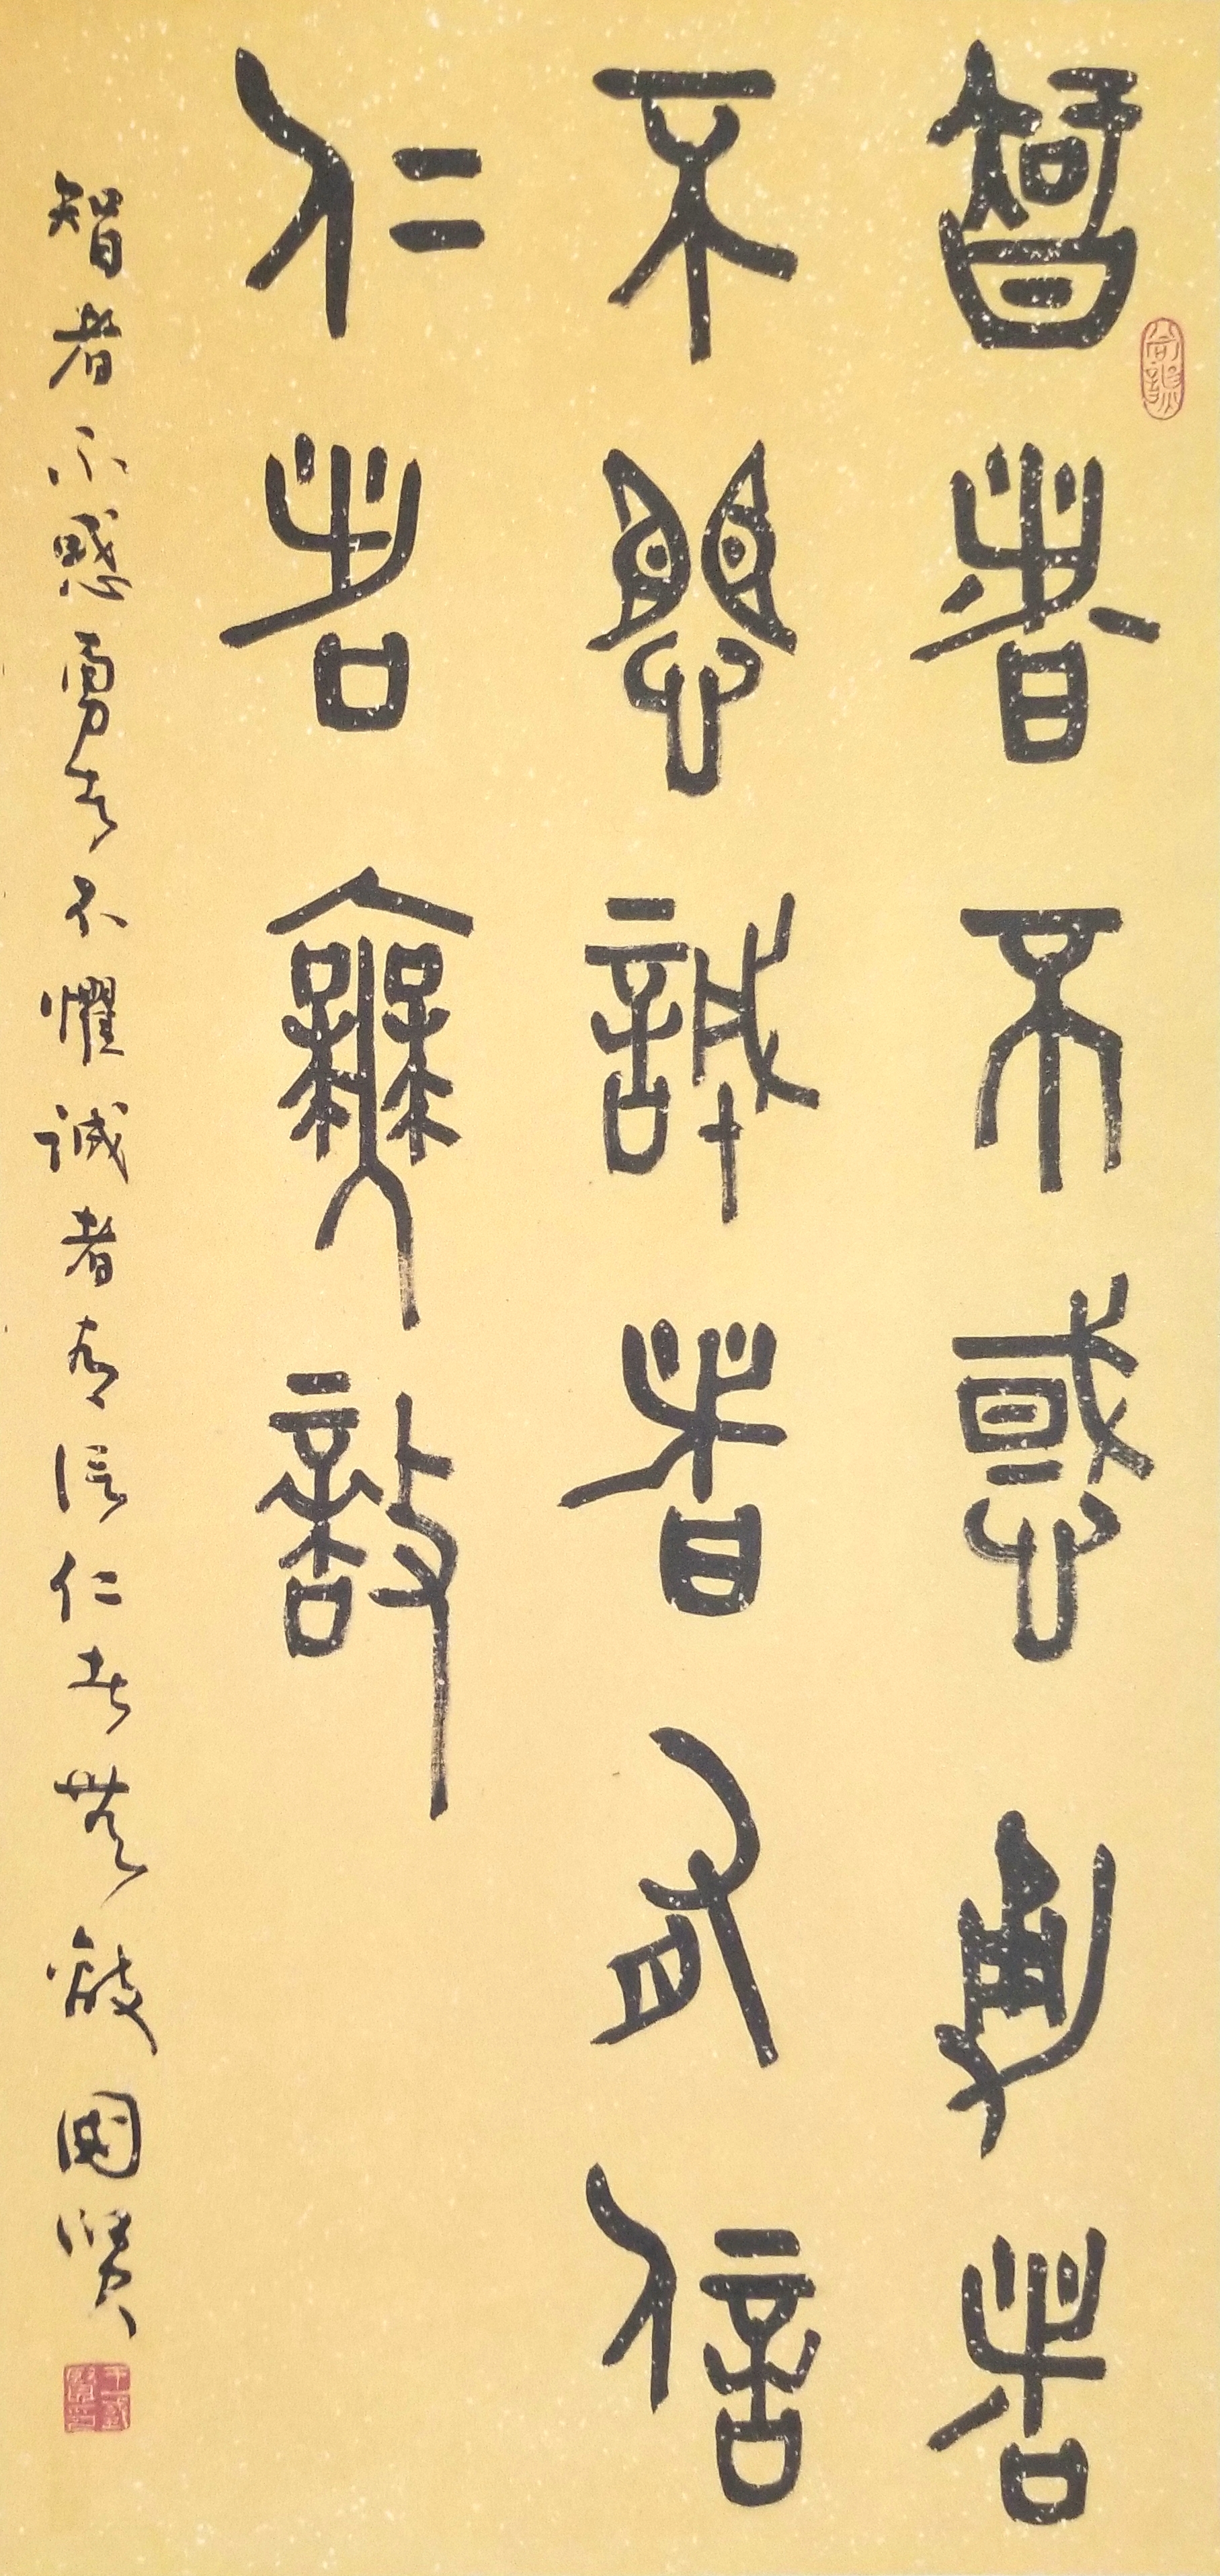 智者不惑勇者
不惧誠者有信
仁者無敵
智者不惑勇者不懼诚者有信仁者無敵國賢